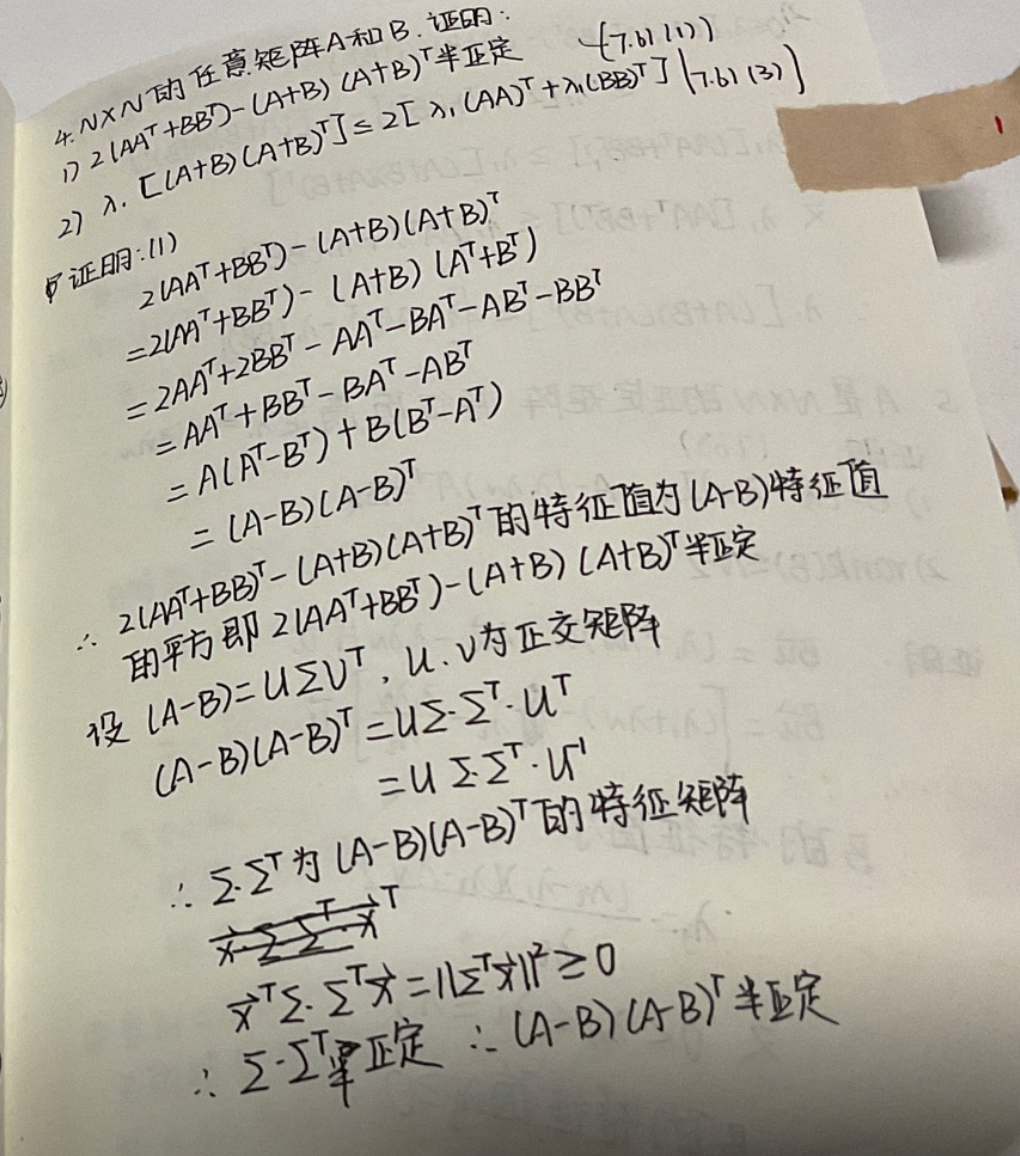 4. N×N的任意矩阵A和B.证明:
1) 2(AAᵀ+BBᵀ)-(A+B)(A+B)ᵀ半正定 (7.61(1))
2) λ₁[(A+B)(A+B)ᵀ]≤2[λ₁(AA)ᵀ+λ₁(BB)ᵀ] (7.61(3))
证明:(1)
2(AAᵀ+BBᵀ)-(A+B)(A+B)ᵀ
=2(AAᵀ+BBᵀ)-(A+B)(Aᵀ+Bᵀ)
=2AAᵀ+2BBᵀ-AAᵀ-BAᵀ-ABᵀ-BBᵀ
=AAᵀ+BBᵀ-BAᵀ-ABᵀ
=A(Aᵀ-Bᵀ)+B(Bᵀ-Aᵀ)
=(A-B)(A-B)ᵀ
∴ 2(AAᵀ+BB)ᵀ-(A+B)(A+B)ᵀ的特征值为(A-B)特征值
的平方即2(AAᵀ+BBᵀ)-(A+B)(A+B)ᵀ半正定
设(A-B)=UΣVᵀ,U.V为正交矩阵
(A-B)(A-B)ᵀ=UΣ·Σᵀ·Uᵀ
=UΣ·Σᵀ·U⁻¹
∴Σ·Σᵀ为(A-B)(A-B)ᵀ的特征矩阵
x⃗ᵀΣ·Σᵀx⃗=||Σᵀx⃗||²≥0
∴Σ·Σᵀ半正定 ∴(A-B)(A-B)ᵀ半正定